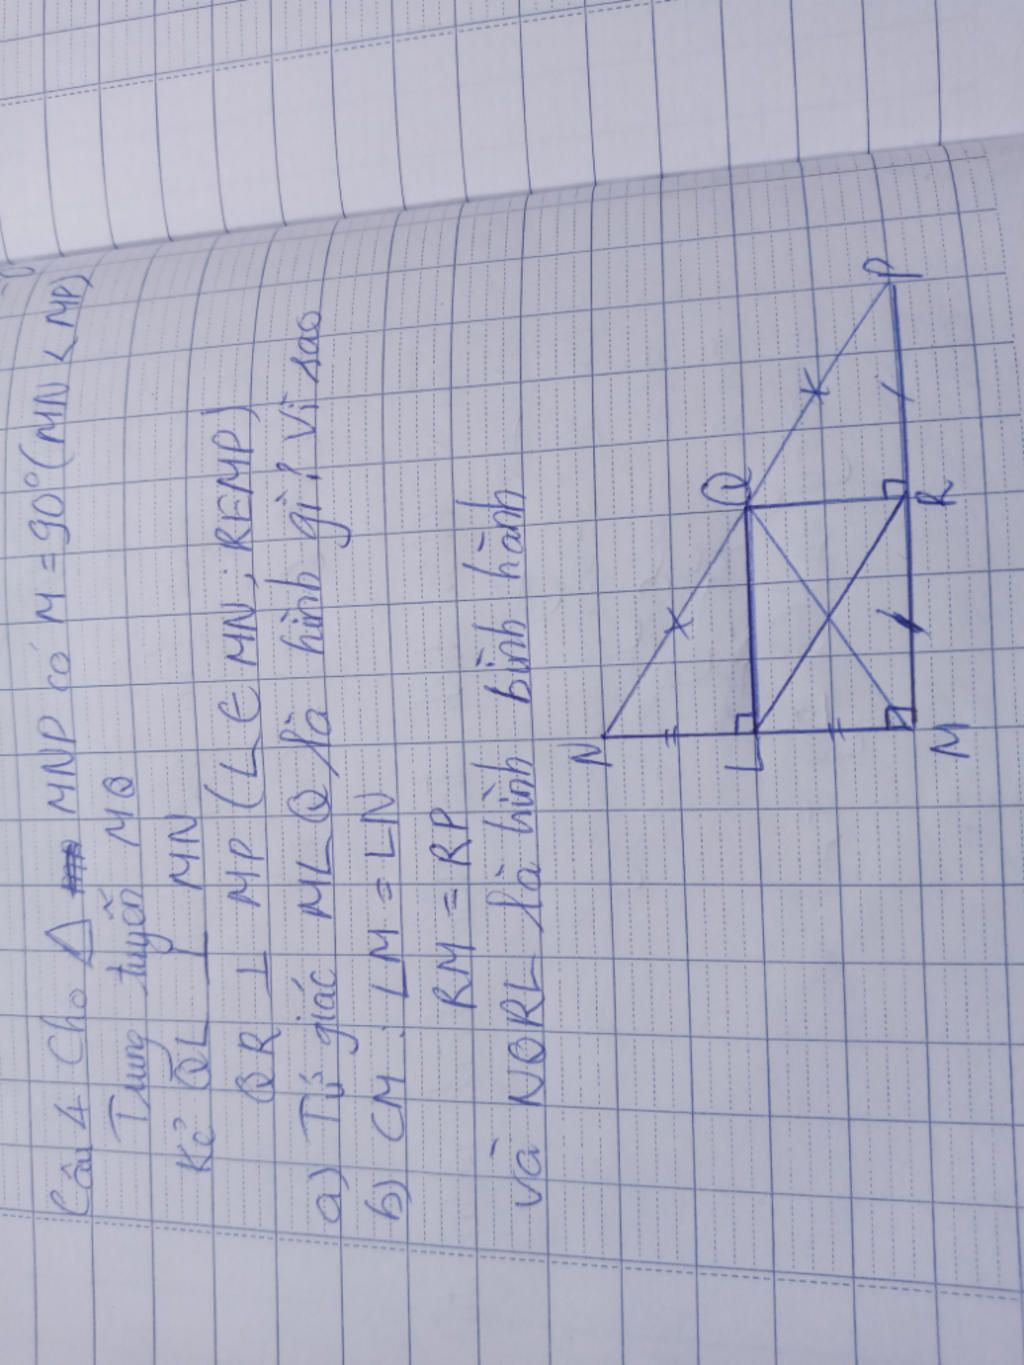 Câu 4 Cho △ MNP có M = 90° (MN < MP)
Trung tuyến MQ
Kẻ QL ⊥ MN
QR ⊥ MP (L ∈ MN ; R ∈ MP)
a) Tứ giác MLQ là hình gì? Vì sao
b) CM : LM = LN
RM = RP
và NQRL là hình bình hành
N
Q
P
L
M
R